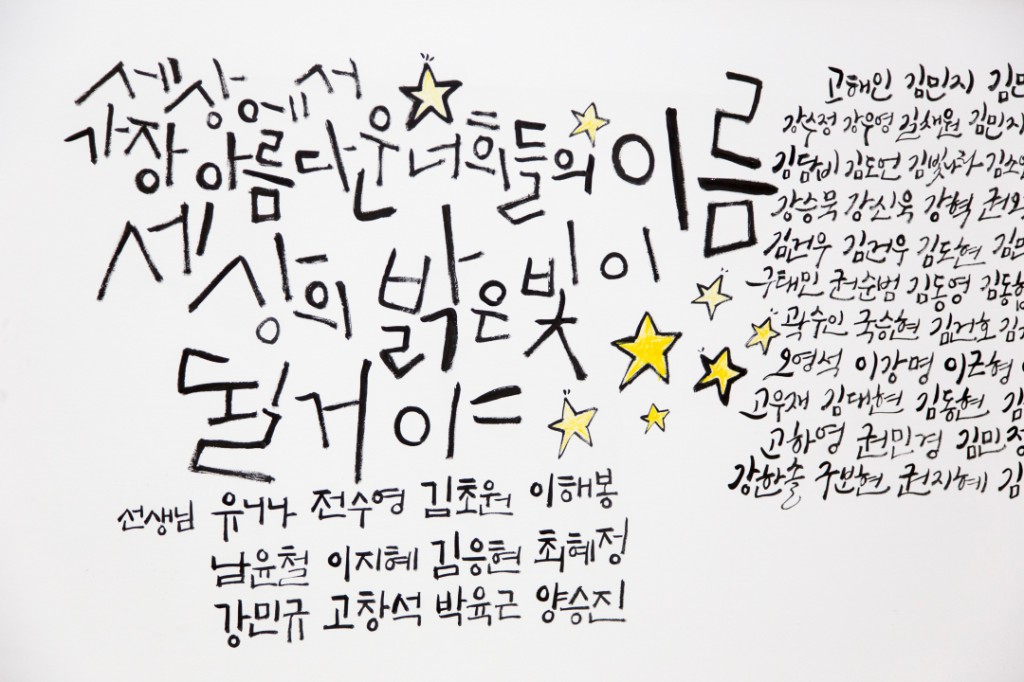 세상에서
가장 아름다운 너희들의 이름
세상의 밝은 빛이
될거야
선생님 유니나 전수영 김초원 이해봉
남윤철 이지혜 김응현 최혜정
강민규 고창석 박육근 양승진
고해인 김민지
강수정 강우영 길채원 김민지
김담비 김도언 김빛나라
강승묵 강신욱 강혁
김건우 김건우 김도현
구태민 권순범 김동영
곽수인 국승현 김건호
오영석 이강명 이근형
고우재 김대현 김동현
고하영 권민경 김민정
강한솔 구보현 권지혜